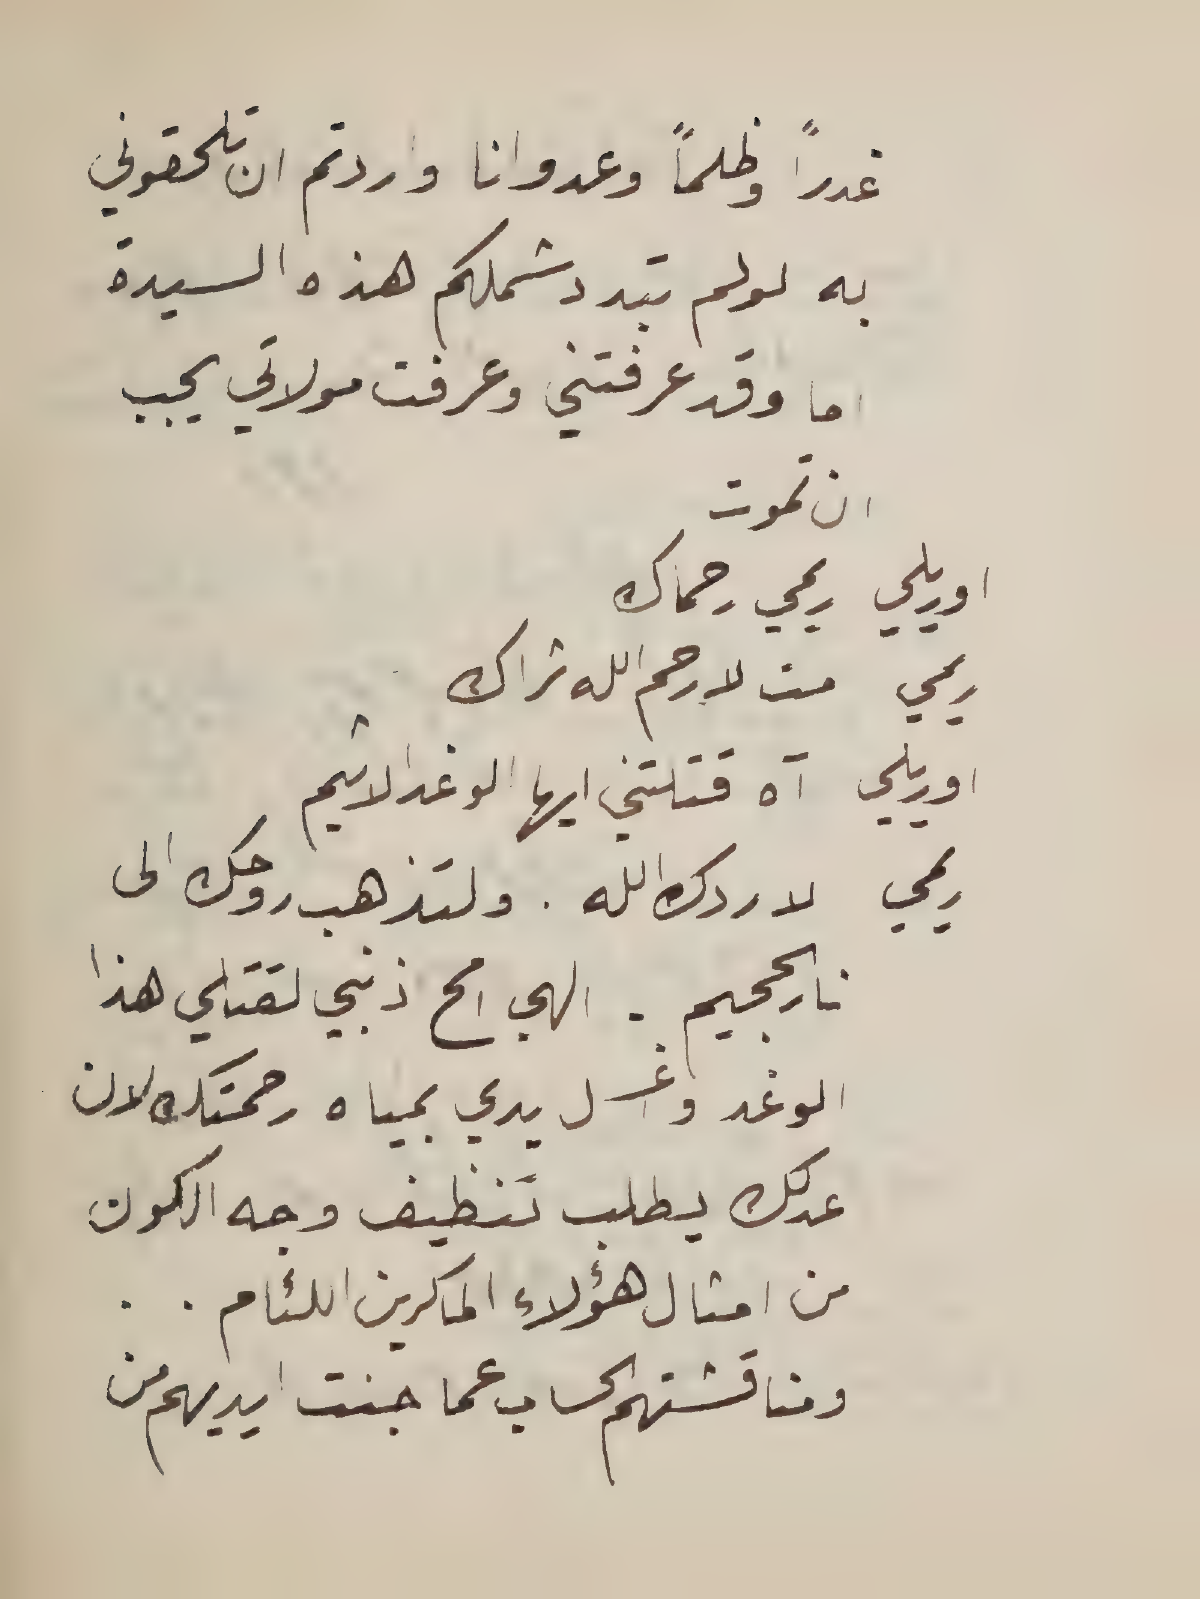 غدراً وظلماً وعدوانا واردتم ان تلحقوني
به لولم تبدد شملكم هذه السيدة
اما وقد عرفتني وعرفت مولاتي يجب
ان تموت
اوريلي ريمي رحماك
ريمي مت لا رحم الله ثراك
اوريلي آه قتلتني ايها الوغد الاثيم
ريمي لا ردك الله . ولتذهب روحك الى
نار الجحيم . الهي امح ذنبي لقتلي هذا
الوغد واغسل يدي بمياه رحمتك لان
عدلك يطلب تنظيف وجه الكون
من امثال هؤلاء الماكرين اللئام . .
ومناقشتهم الحساب عما جنت ايديهم من